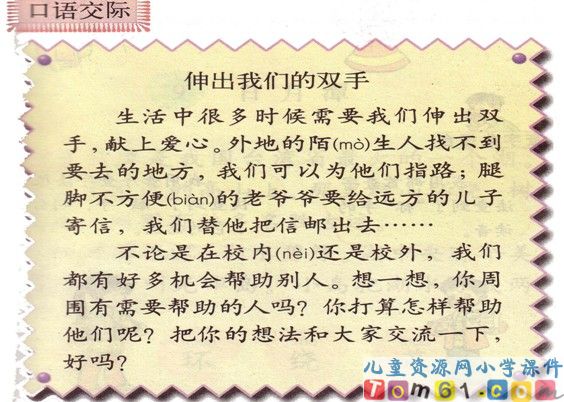 口语交际
伸出我们的双手
生活中很多时候需要我们伸出双
手，献上爱心。外地的陌(mò)生人找不到
要去的地方，我们可以为他们指路；腿
脚不方便(biàn)的老爷爷要给远方的儿子
寄信，我们替他把信邮出去……
不论是在校内(nèi)还是校外，我们
都有好多机会帮助别人。想一想，你周
围有需要帮助的人吗？你打算怎样帮助
他们呢？把你的想法和大家交流一下，
好吗？
儿童资源网小学课件
Tom61.com